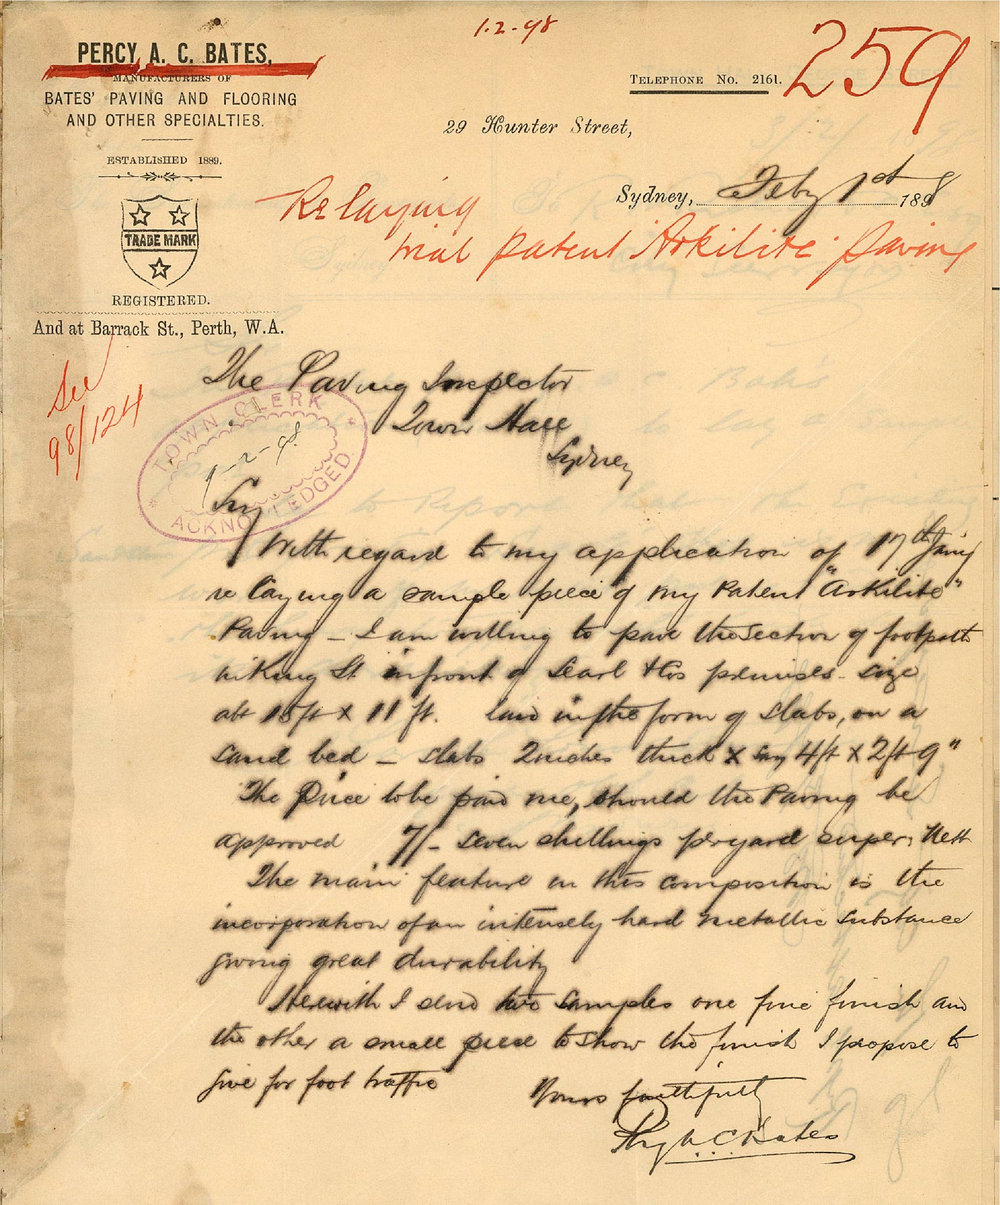 1.2.98
259
PERCY, A. C. BATES,
MANUFACTURERS OF
BATES' PAVING AND FLOORING
AND OTHER SPECIALTIES.
ESTABLISHED 1889.
TRADE MARK
REGISTERED.
And at Barrack St., Perth, W.A.
TELEPHONE No. 2161.
29 Hunter Street,
Sydney, Feby 1st 1898
Re laying
trial patent Arkilite paving
See
98/124
TOWN CLERK
1-2-98
ACKNOWLEDGED
The Paving Inspector
Town Hall
Sydney
Sir
With regard to my application of 17th Jany
re laying a sample piece of my Patent "Arkilite"
Paving - I am willing to pave the section of footpath
in King St in front of Searl & Cos premises - size
abt 15ft x 11 ft. laid in the form of slabs, on a
sand bed - slabs 2 inches thick x say 4ft x 2ft 9"
The Price to be paid me, should the Paving be
approved 7/- seven shillings per yard super: Nett
The main feature in this composition is the
incorporation of an intensely hard metallic substance
giving great durability
Herewith I send two samples one fine finish and
the other a small piece to show the finish I propose to
give for foot traffic
Yours faithfully
Percy A. C. Bates